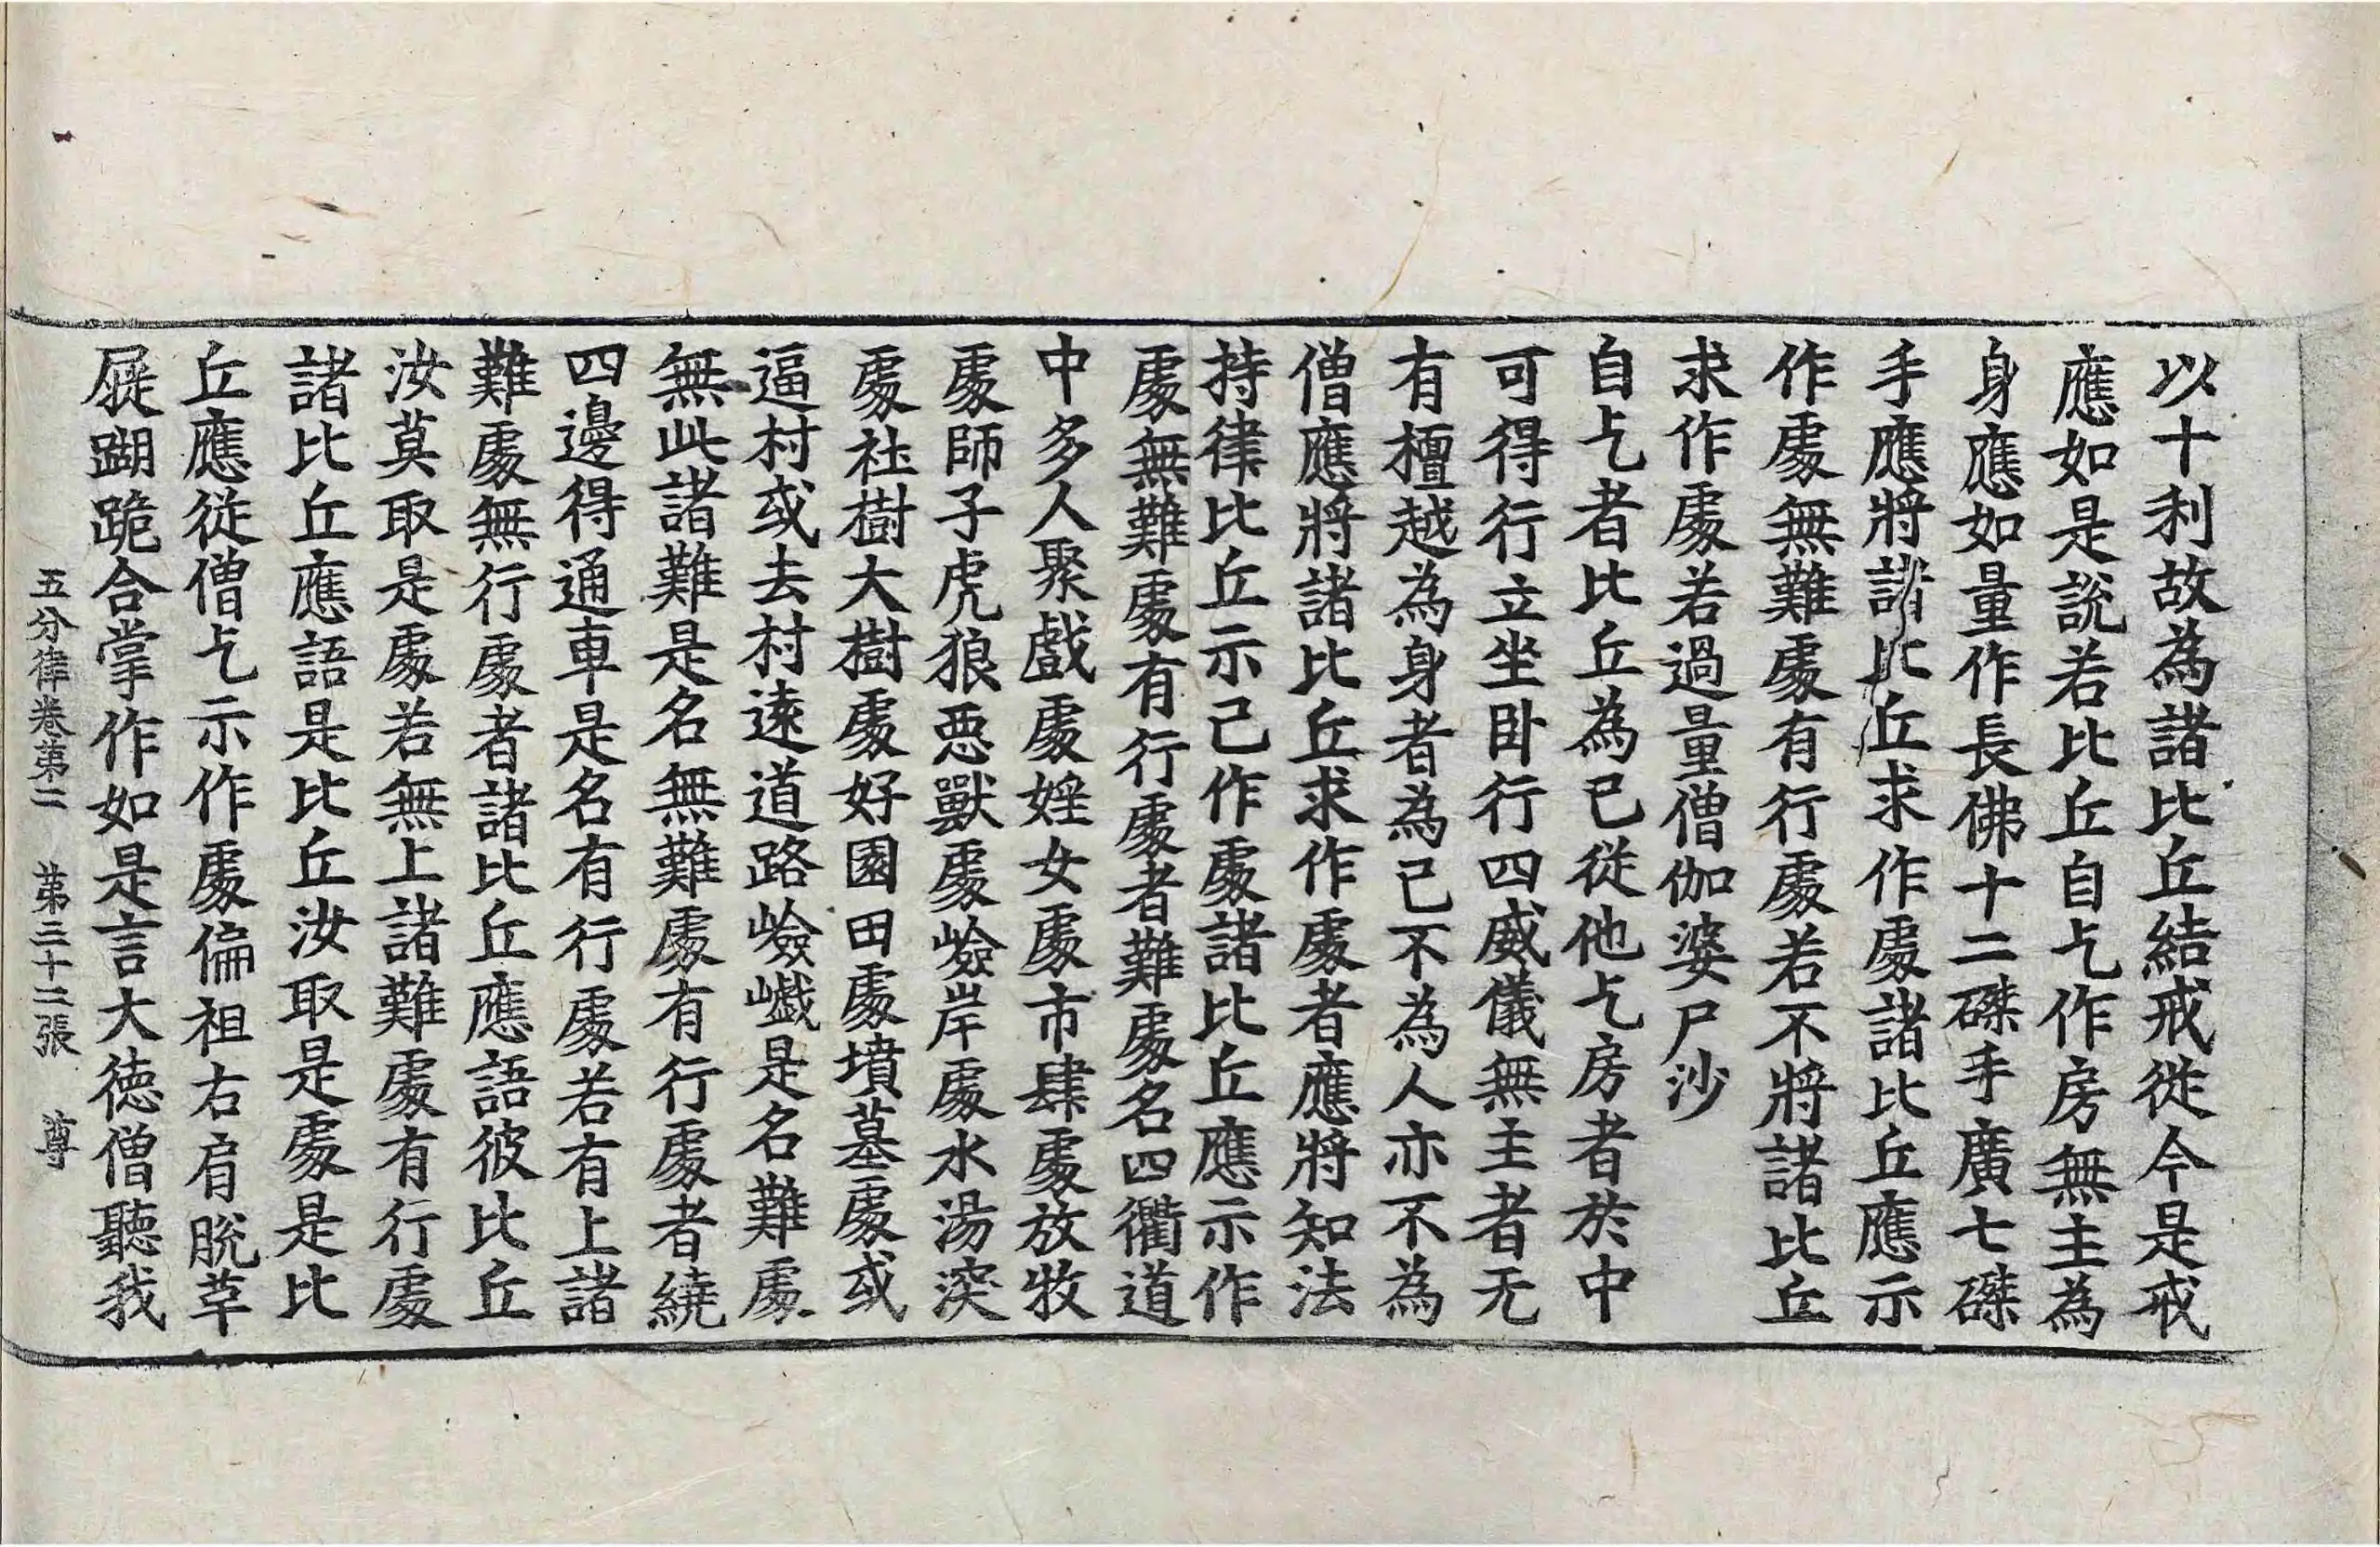 以十利故為諸比丘結戒從今是戒
應如是說若比丘自乞作房無主為
身應如量作長佛十二磔手廣七磔
手應將諸比丘求作處諸比丘應示
作處無難處有行處若不將諸比丘
求作處若過量僧伽婆尸沙
自乞者比丘為已從他乞房者於中
可得行立坐卧行四威儀無主者无
有檀越為身者為己不為人亦不為
僧應將諸比丘求作處者應將知法
持律比丘示己作處諸比丘應示作
處無難處有行處者難處名四衢道
中多人聚戲處婬女處市肆處放牧
處師子虎狼惡獸處嶮岸處水湯突
處社樹大樹處好園田處墳墓處或
逼村或去村遠道路嶮巇是名難處
無此諸難是名無難處有行處者繞
四邊得通車是名有行處若有上諸
難處無行處者諸比丘應語彼比丘
汝莫取是處若無上諸難處有行處
諸比丘應語是比丘汝取是處是比
丘應從僧乞示作處偏袒右肩脫革
屣蹋跪合掌作如是言大德僧聽我
五分律卷第二 第二十二張 尊